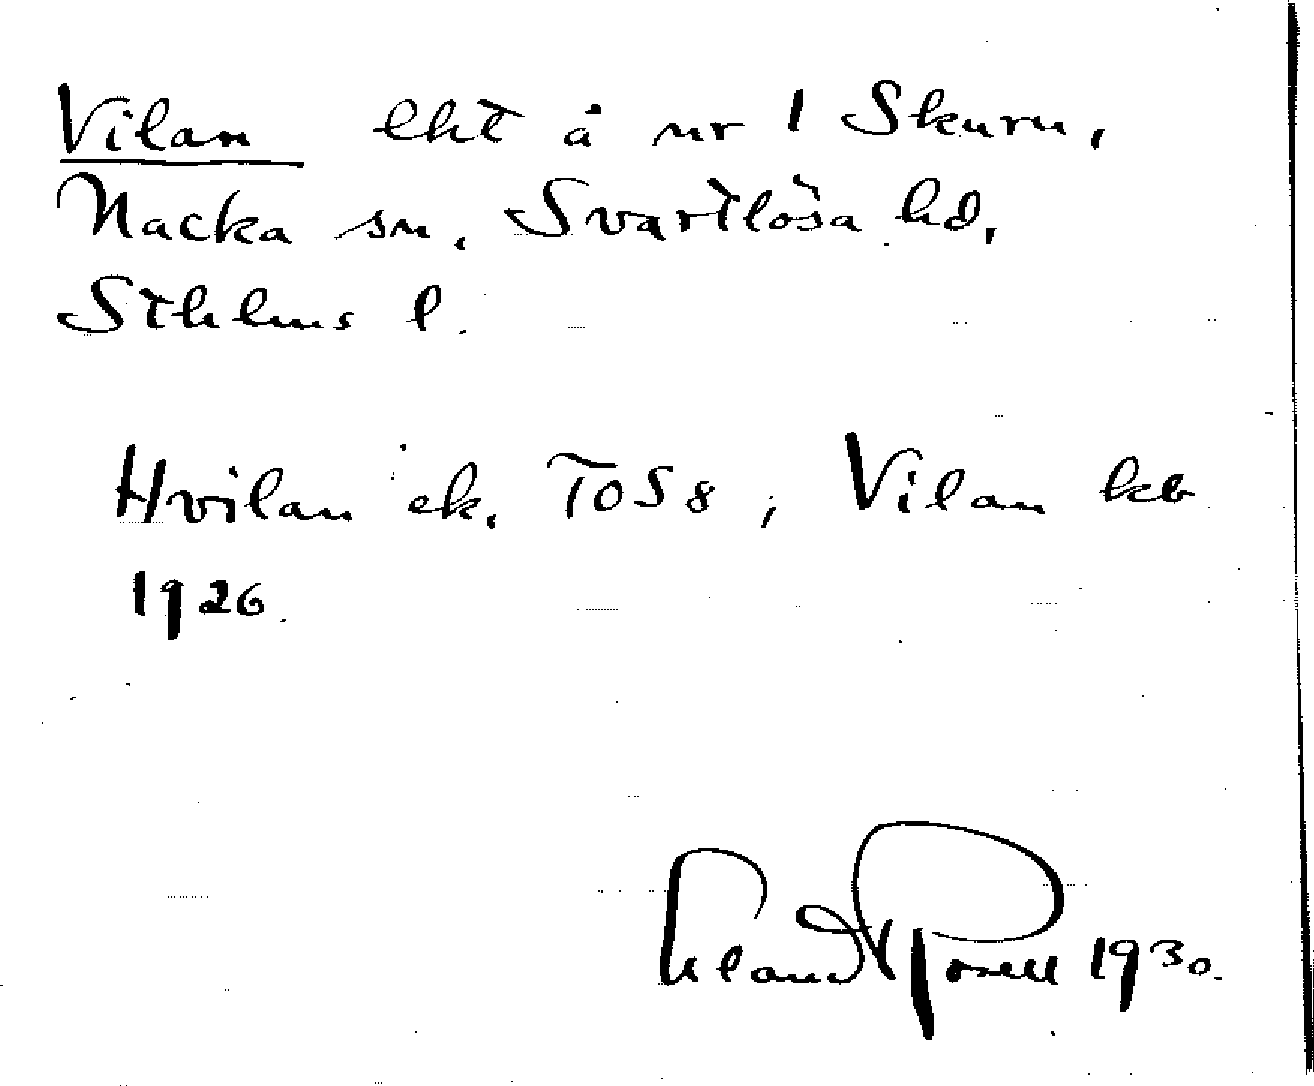 Vilan lht å nr 1 Skuru,
Nacka sn, Svartlösa hd,
Sthlms l.
Hvilan ek. TOS 8, Vilan kb
1926.
Erland Rosell 1930.